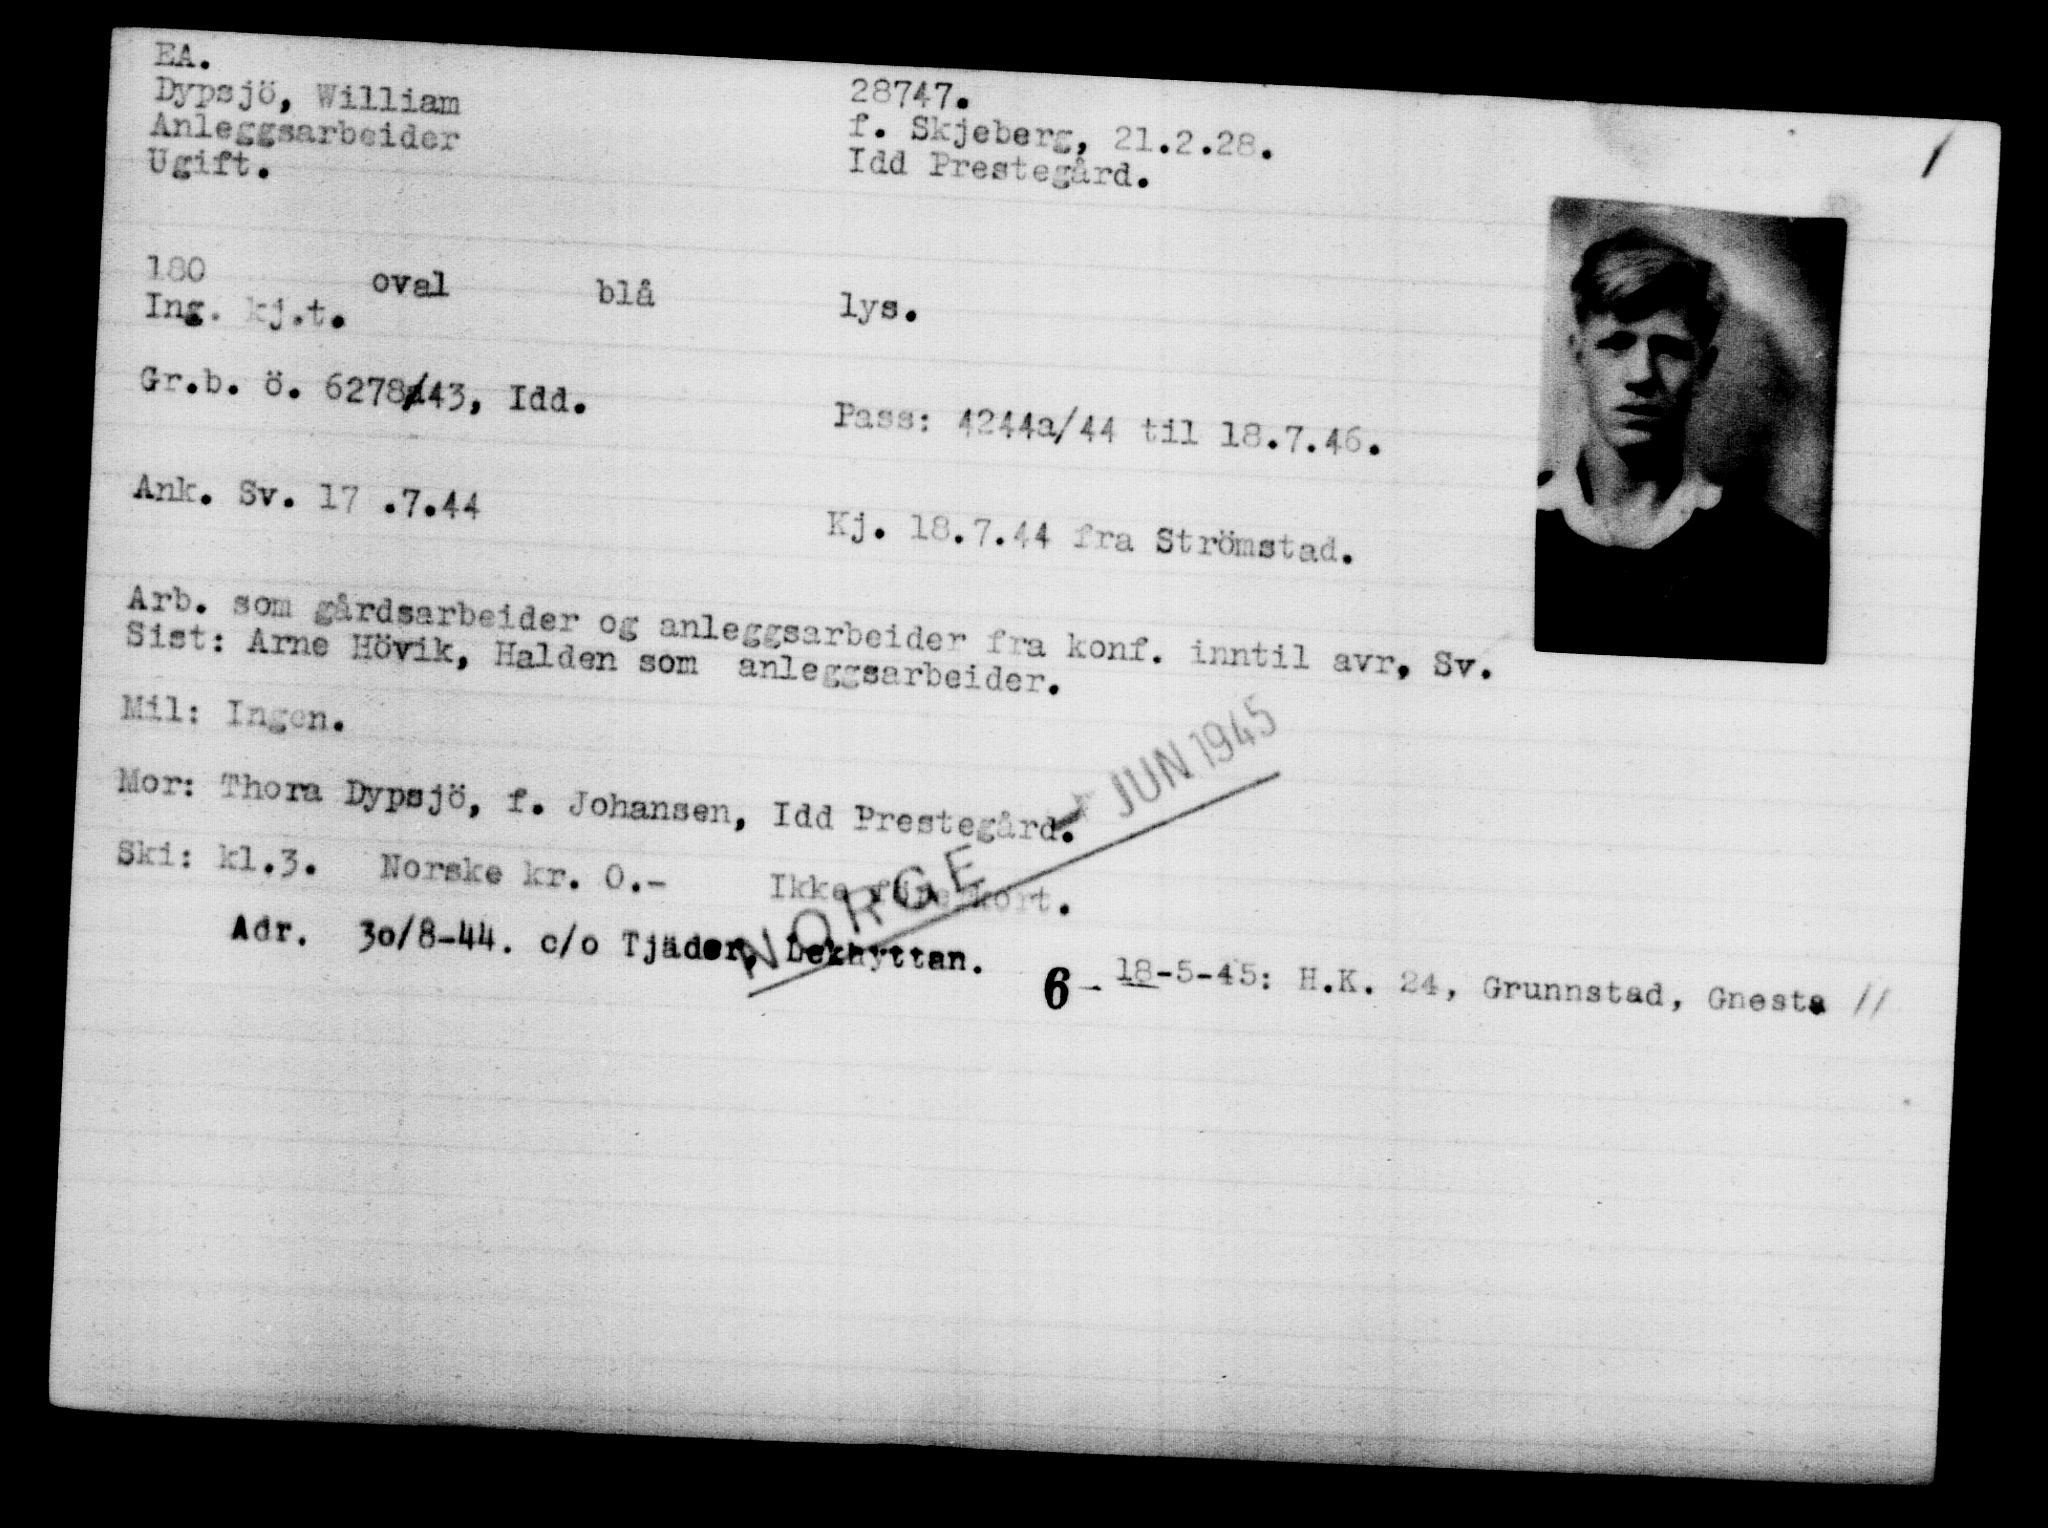 EA.
Dypsjö, William 28747.
Anleggsarbeider f. Skjeberg, 21.2.28.
Ugift. Idd Prestegård.
1
180 oval blå lys.
Ing. kj.t.
Gr.b. ö. 6278/43, Idd. Pass: 4244a/44 til 18.7.46.
Ank. Sv. 17 .7.44 Kj. 18.7.44 fra Strömstad.
Arb. som gårdsarbeider og anleggsarbeider fra konf. inntil avr, Sv.
Sist: Arne Hövik, Halden som anleggsarbeider.
Mil: Ingen.
Mor: Thora Dypsjö, f. Johansen, Idd Prestegård.
JUN 1945
Ski: kl.3. Norske kr. 0.- Ikke förekort.
NORGE
Adr. 30/8-44. c/o Tjäder, Lekhyttan.
6 - 18-5-45: H.K. 24, Grunnstad, Gnesta //